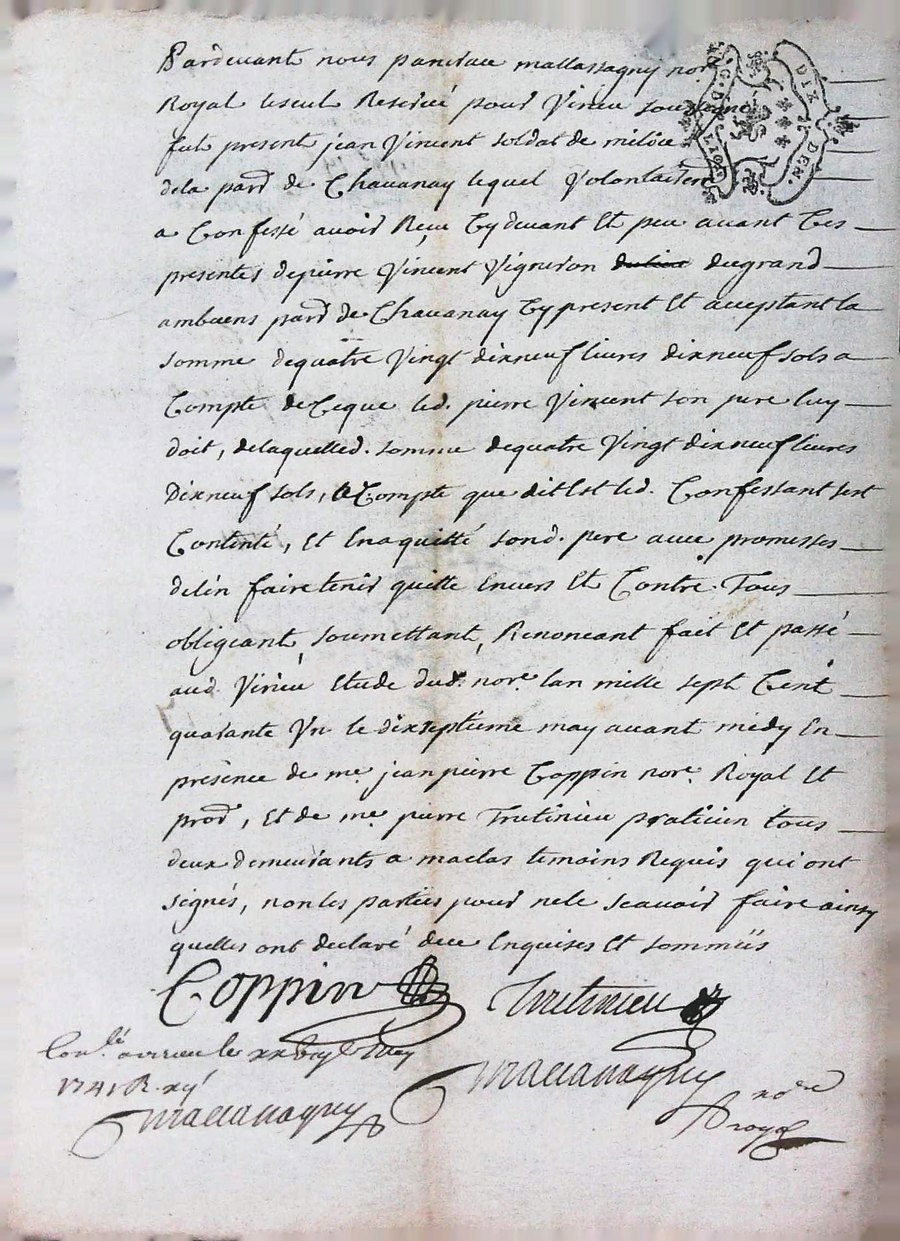 Pardevant nous pancrace mallassagny nore
Royal leseul Reservé pour Virieu soussigné
fut present jean Vincent soldat de milice
dela parr. de Chavanay lequel Volontairem
a Confessé avoir Reçu Cydevant Et peu avant Ces
presentes depierre Vincent Vigneron dugrand
ambuens parr. de Chavanay Cypresent Et acceptant la
somme dequatre Vingt dixneuf livres dixneuf sols a
Compte deCeque led. pierre Vincent son pere luy
doit, delaquelled. somme dequatre Vingt dixneuf livres
Dixneuf sols, a Compte que dit Est led. Confessant sest
Contenté, Et Enaquitté sond. pere avec promesses
delén faire tenir quitte Envers Et Contre Tous
obligeant, soumettant, Renonceant fait Et passé
aud. Virieu Etude dud. nore. lan mille sept Cent
quarante Vn le dixseptieme may avant midy En
presence de me. jean pierre Coppin nore. Royal Et
procr, Et de me. pierre Trutinieu praticien tous
deux demeurants a maclas temoins Requis qui ont
signés, non les parties pour nele scavoir faire ainsy
quelles ont declaré dece Enquises Et sommeés
Coppin Trutinieu
Conlé. avirieu le may
1741 R.
DIX DEN.
G. D. LION
nore
royal